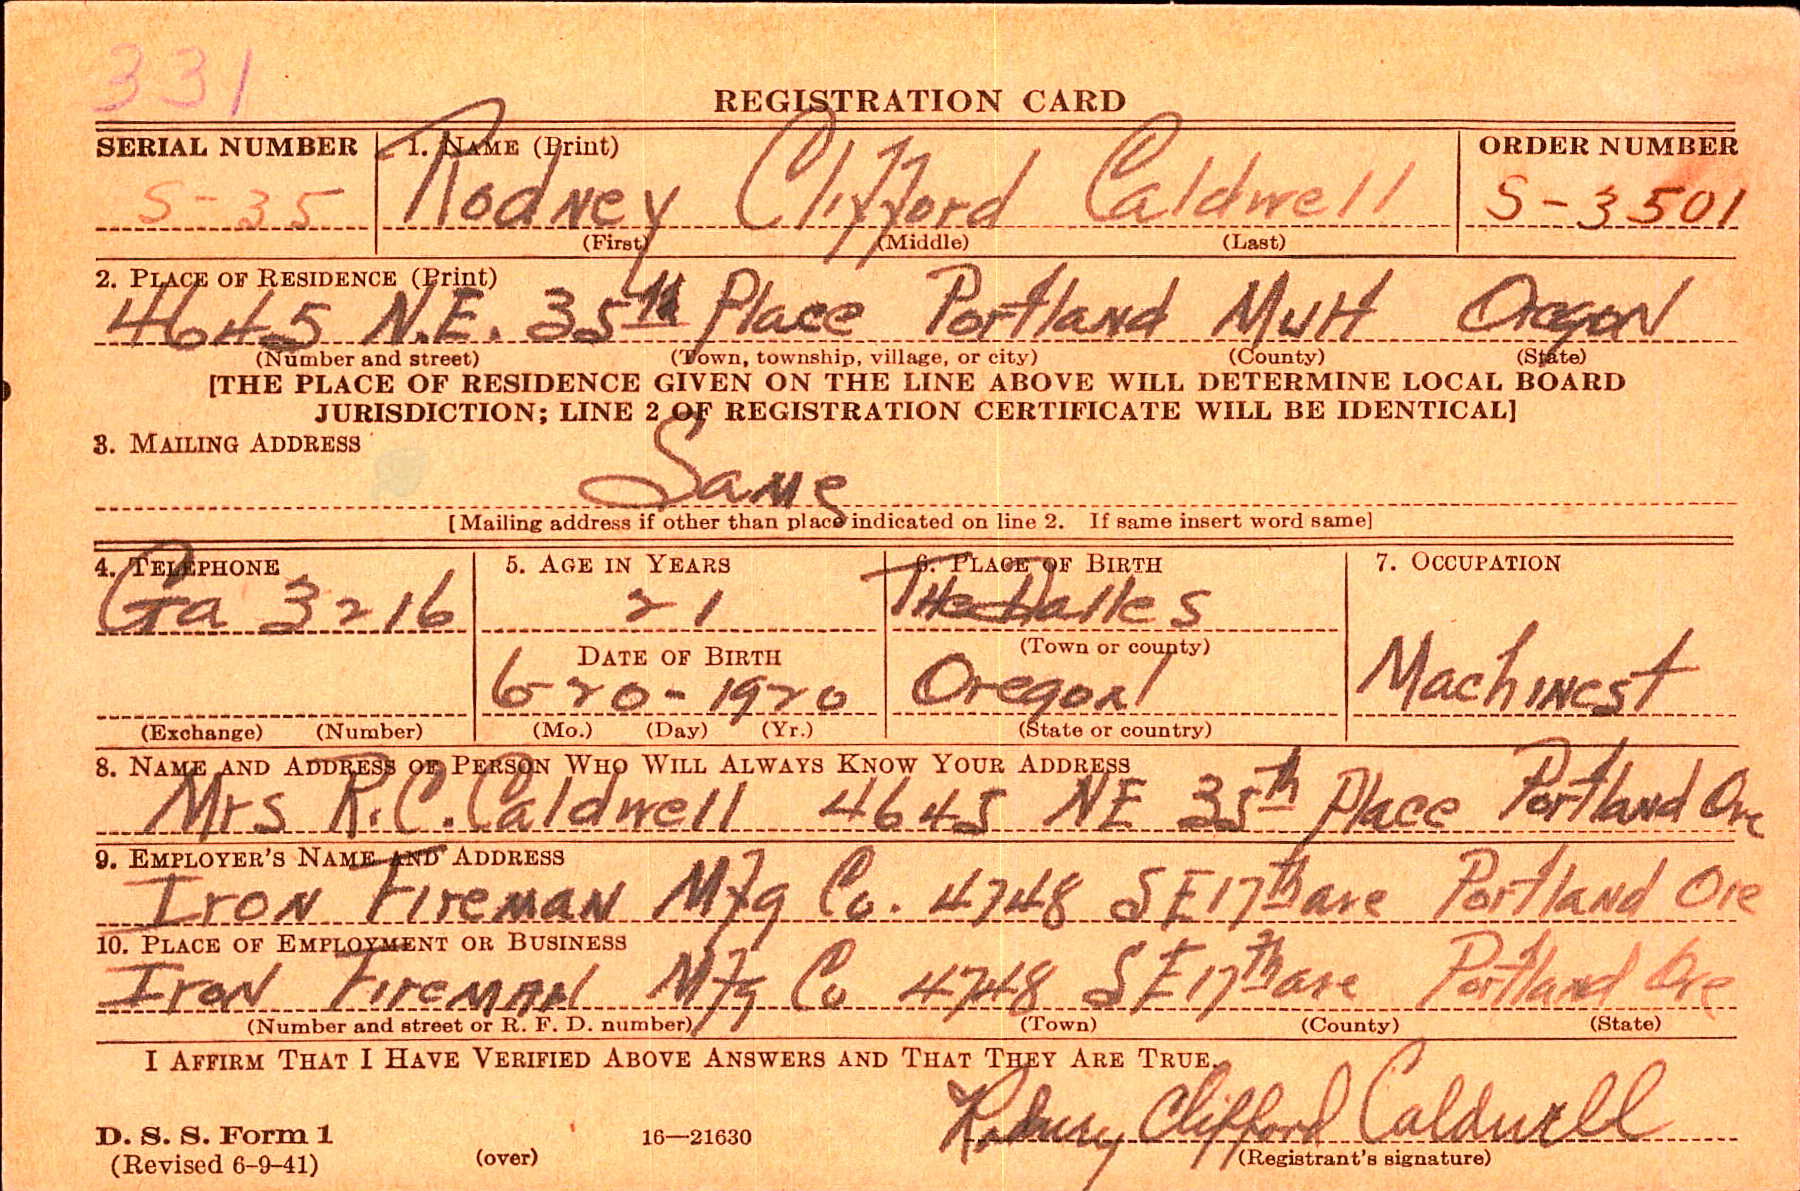 331
REGISTRATION CARD
SERIAL NUMBER 1. NAME (Print) ORDER NUMBER
S-35 Rodney Clifford Caldwell S-3501
(First) (Middle) (Last)
2. PLACE OF RESIDENCE (Print)
4645 N.E. 35th Place Portland Mult Oregon
(Number and street) (Town, township, village, or city) (County) (State)
[THE PLACE OF RESIDENCE GIVEN ON THE LINE ABOVE WILL DETERMINE LOCAL BOARD
JURISDICTION; LINE 2 OF REGISTRATION CERTIFICATE WILL BE IDENTICAL]
3. MAILING ADDRESS
Same
[Mailing address if other than place indicated on line 2. If same insert word same]
4. TELEPHONE 5. AGE IN YEARS 6. PLACE OF BIRTH 7. OCCUPATION
Ga 3216 21 The Dalles
(Town or county)
DATE OF BIRTH
6-20-1920 Oregon Machinest
(Exchange) (Number) (Mo.) (Day) (Yr.) (State or country)
8. NAME AND ADDRESS OF PERSON WHO WILL ALWAYS KNOW YOUR ADDRESS
Mrs R.C. Caldwell 4645 NE 35th Place Portland Ore
9. EMPLOYER'S NAME AND ADDRESS
Iron Fireman Mfg Co. 4748 SE 17th ave Portland Ore
10. PLACE OF EMPLOYMENT OR BUSINESS
Iron Fireman Mfg Co 4748 SE 17th ave Portland Ore
(Number and street or R. F. D. number) (Town) (County) (State)
I AFFIRM THAT I HAVE VERIFIED ABOVE ANSWERS AND THAT THEY ARE TRUE.
Rodney Clifford Caldwell
D. S. S. Form 1
(Revised 6-9-41) (over) 16—21630 (Registrant's signature)